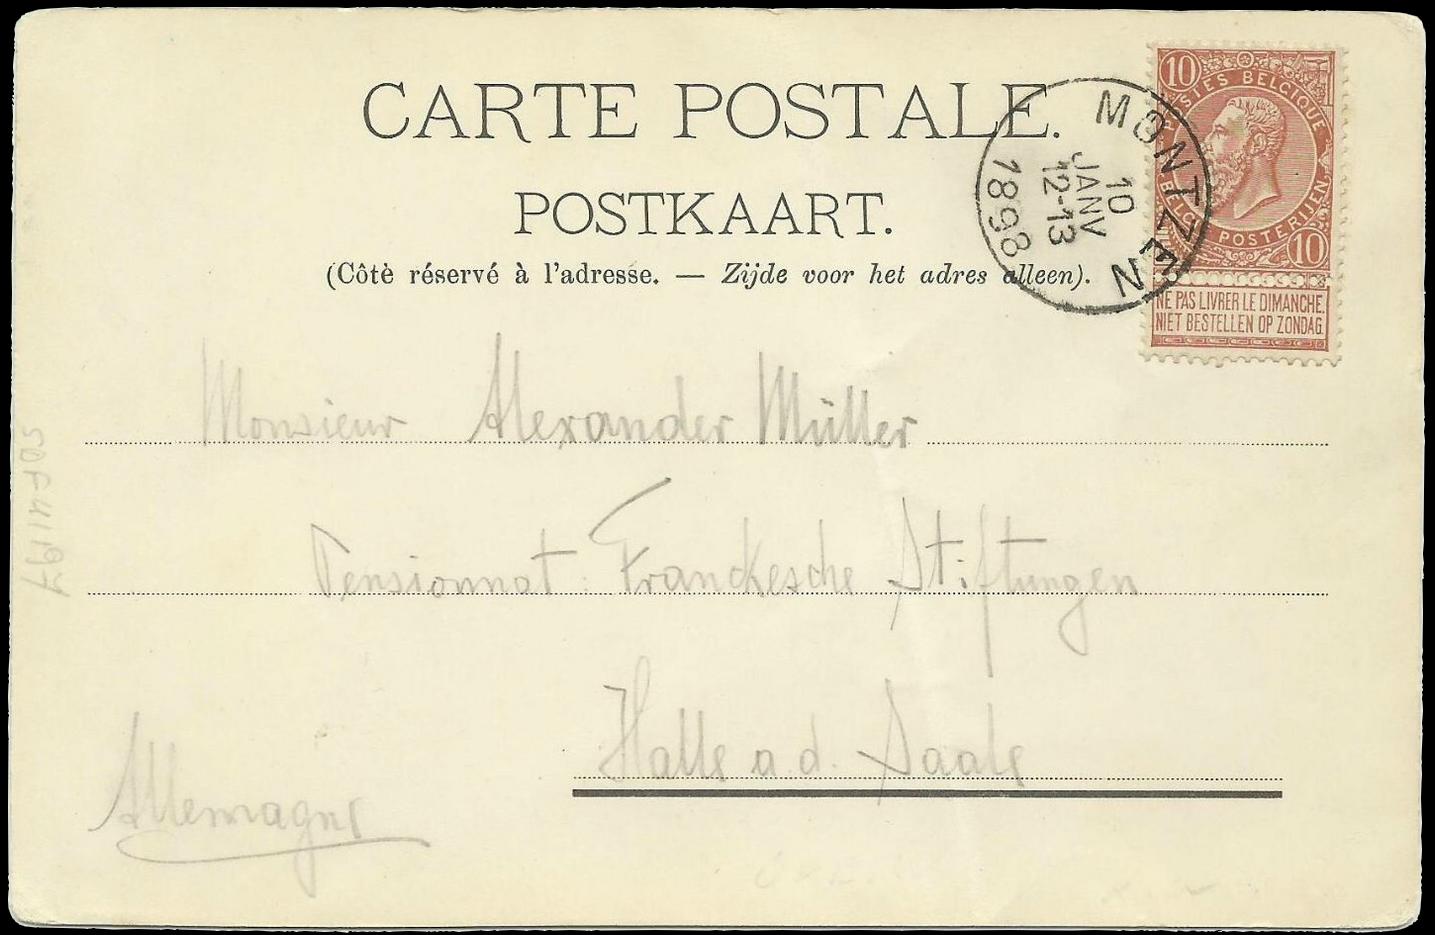 CARTE POSTALE.
POSTKAART.
(Côtè réservé à l'adresse. — Zijde voor het adres alleen).
MONTZEN
10
JANV
12-13
1898
10
POSTES BELGIQUE
BELGIE POSTERIJEN
10
NE PAS LIVRER LE DIMANCHE.
NIET BESTELLEN OP ZONDAG.
Monsieur Alexander Müller
Pensionnat: Franckesche Stiftungen
Halle a. d. Saale
Allemagne